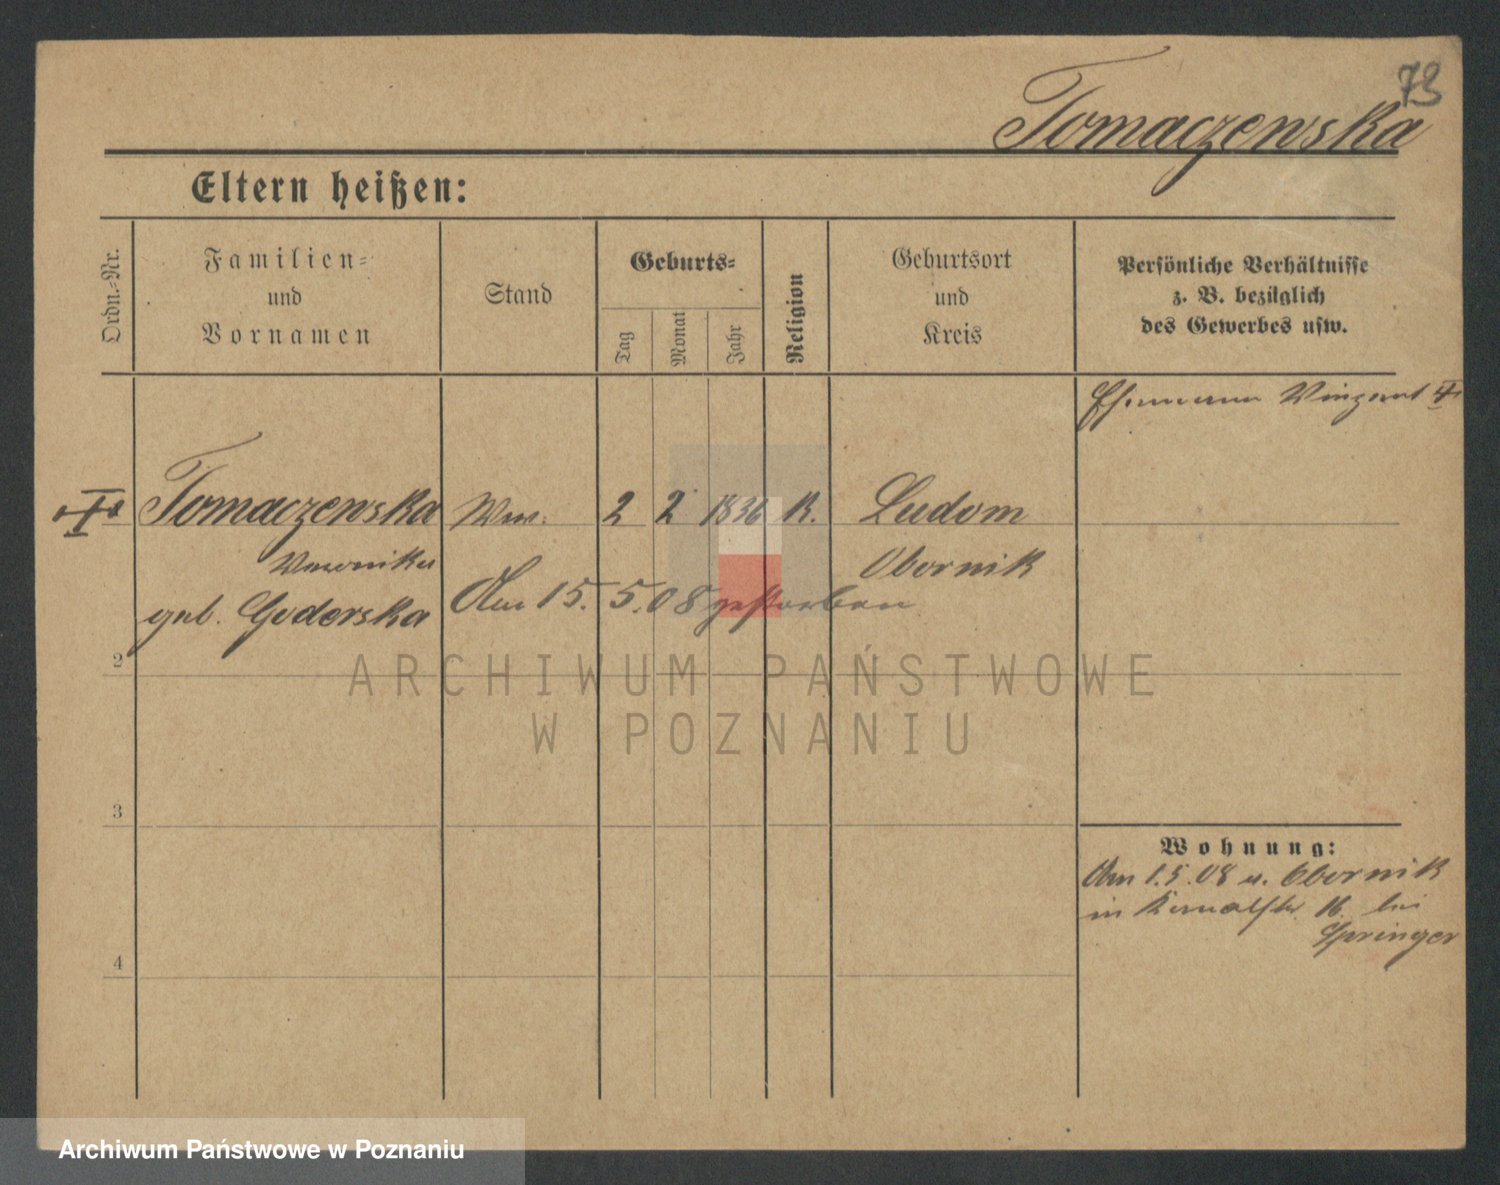 73
Tomaczewska
Eltern heißen:
Ordn.-Nr.
Familien-
und
Vornamen
Stand
Geburts-
Tag
Monat
Jahr
Religion
Geburtsort
und
Kreis
Persönliche Verhältnisse
z. B. bezüglich
des Gewerbes usw.
Ehemann Vinzent
Tomaczewska Ww. 2 2 1836 K. Ludom
Veronika Obornik
geb. Goderska Am 15. 5. 08 gestorben
2
3
4
Wohnung:
Am 1.5.08 v. Obornik
in 16. bei
Springer
ARCHIWUM PAŃSTWOWE
W POZNANIU
Archiwum Państwowe w Poznaniu